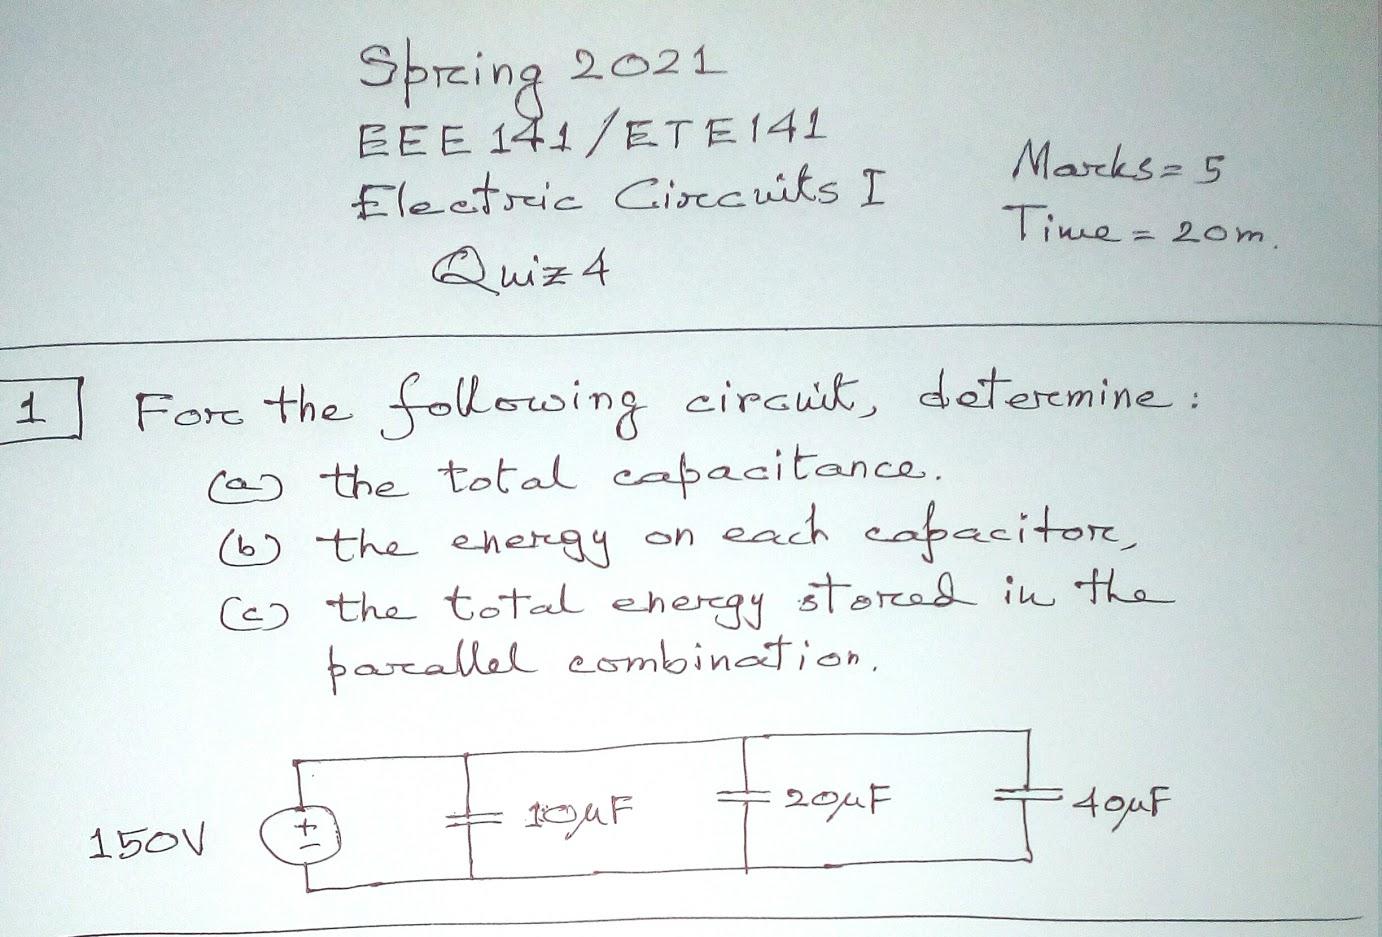 Spring 2021
EEE 141/ETE141
Electric Circuits I
Quiz 4
Marks = 5
Time = 20m.
1 For the following circuit, determine:
(a) the total capacitance.
(b) the energy on each capacitor,
(c) the total energy stored in the
parallel combination.
150V
+
-
10μF
20μF
40μF